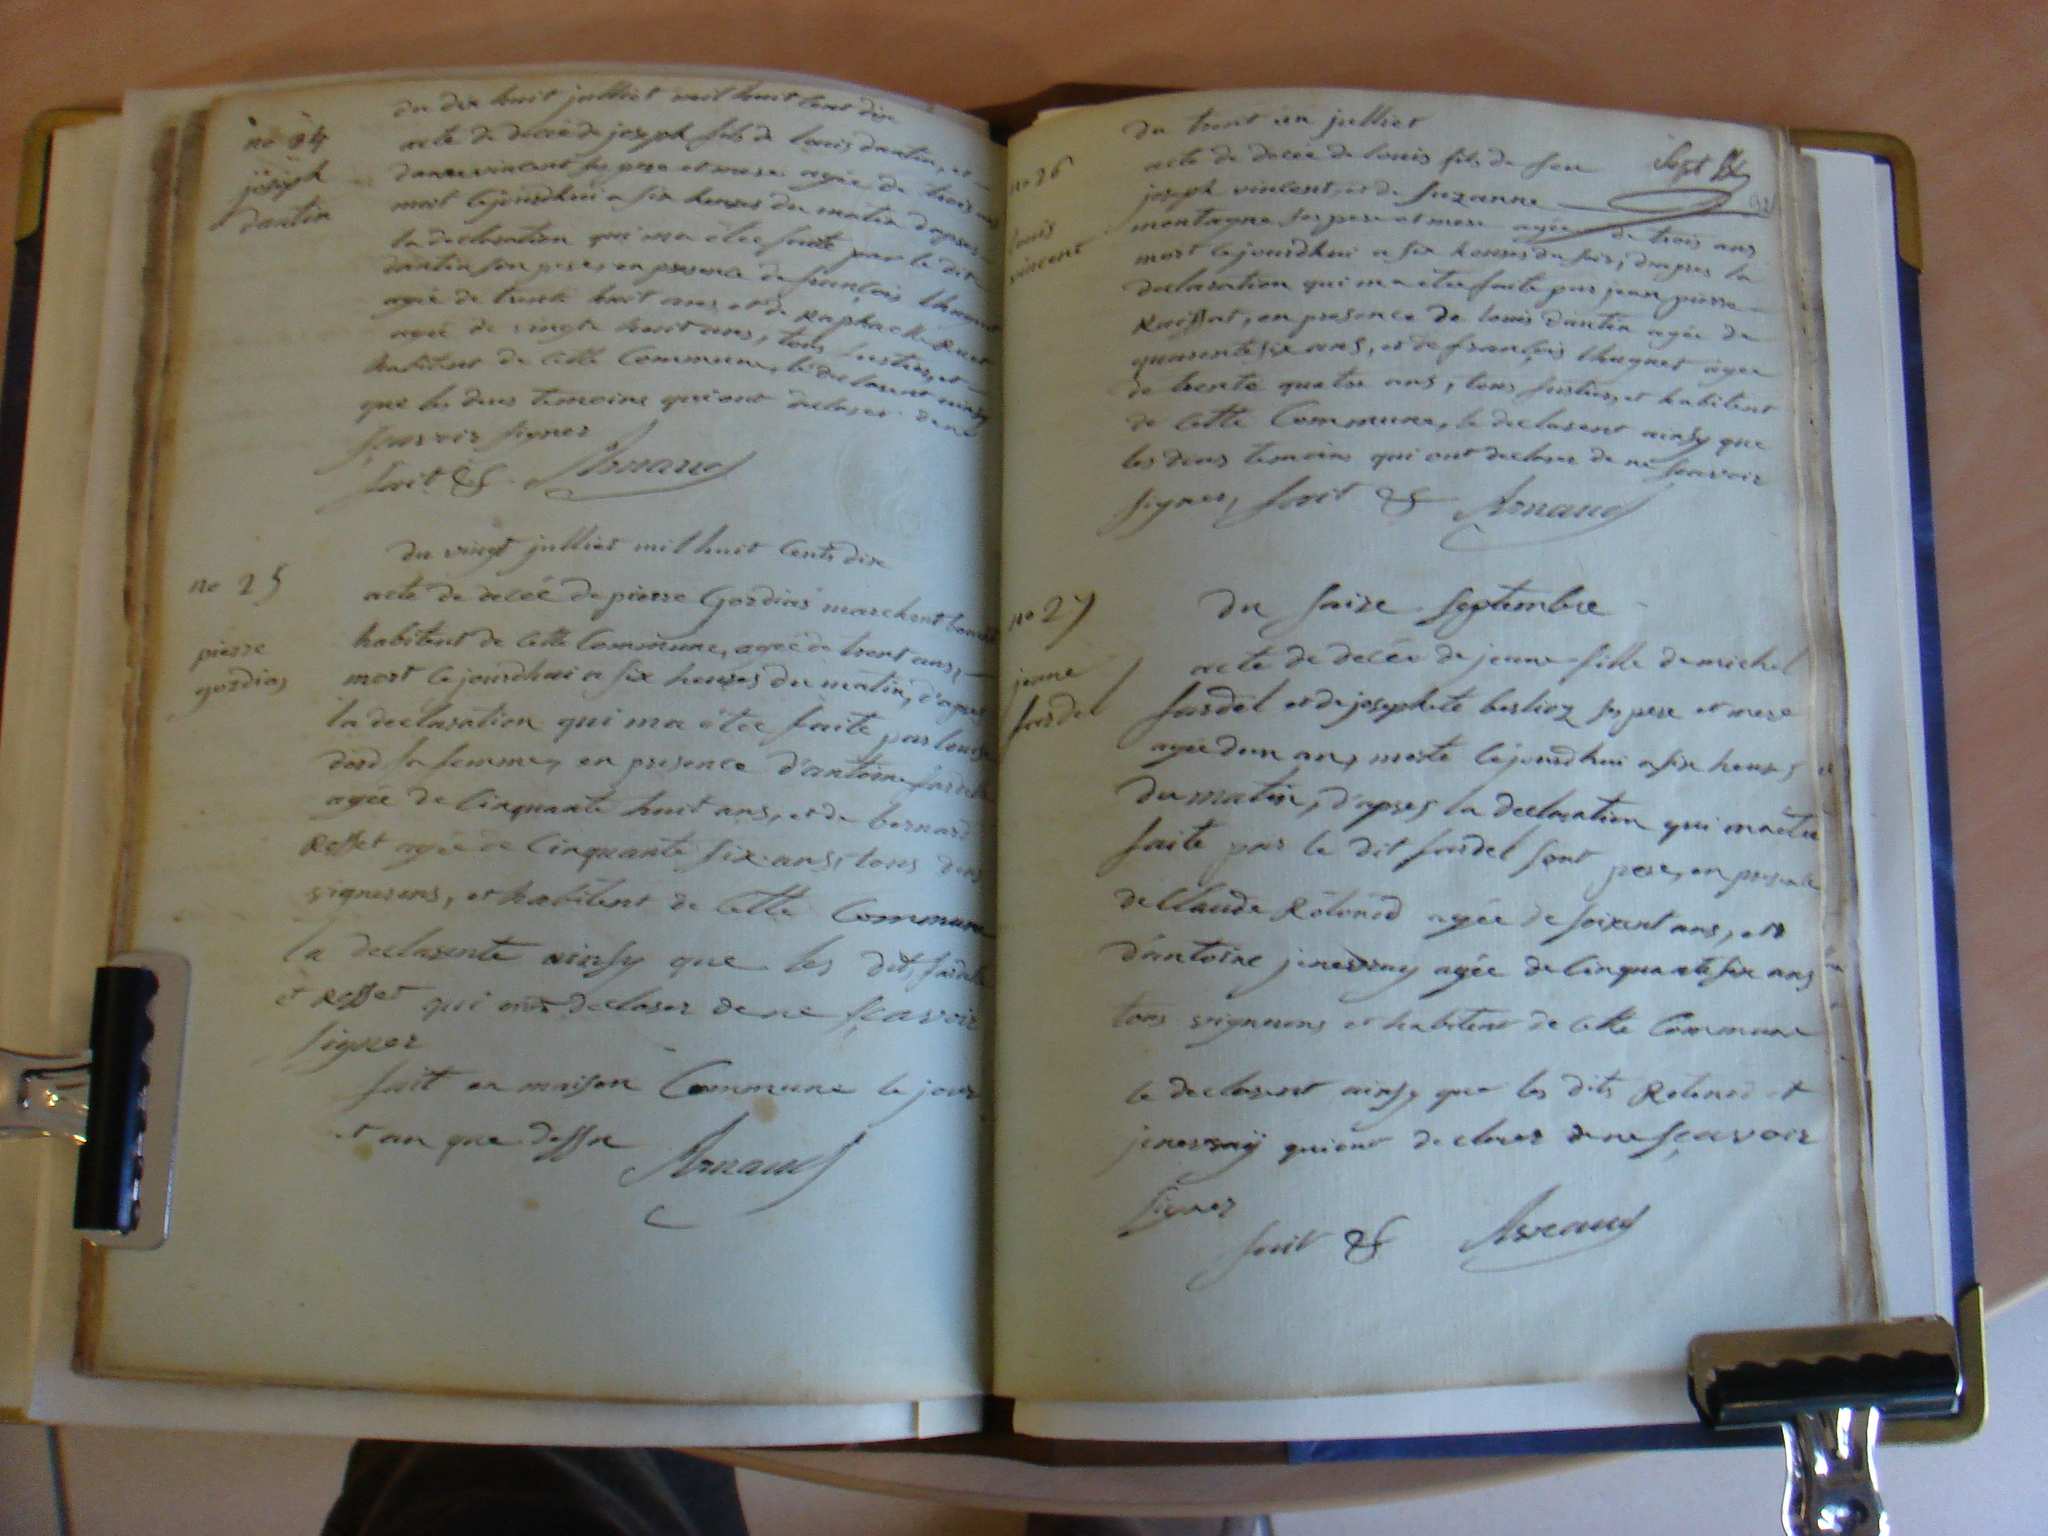 du dix huit julliet mil huit cent dix
no 24
joseph
dantin
acte de decée de joseph fils de louis dantin, et
vincent ses pere et mere agée de trois ans
mort cejourdhui a six heures du matin dapres
la declaration qui ma étée faite par le dit
dantin son pere, en presence de françois thuguet
agée de trente huit ans et de raphaell
agée de vingte huit ans, tous et
habitent de cette Commune, le declarent ainsy
que les deus temoins qui ont declarer de ne
sçavoir signer
fait & Arnaud
du vingt julliet mil huit Cents dix
no 25
pierre
gordias
acte de decée de pierre Gordias marchent
habitent de cette Commune, agée de trent ans,
mort cejourdhui a six heures du matin, d'apres
la declaration qui ma étée faite par louise
dord sa femme, en presence d'antoine fardel
agée de Cinquante huit ans, et de bernard
Resset agée de Cinquante six ans tous deus
vignerons, et habitent de Cette Commune
la declarente ainsy que les dits fardel
et Resset qui ont declarer de ne sçavoir
signer
fait en maison Commune le jour
et an que dessu Arnaud
du trent un julliet
Sept
no 26
louis
vincent
acte de decée de louis fils de feu
joseph vincent, et de Suzanne
montagne ses pere et mere agée de trois ans
mort cejourdhui a six heures du soir, dapres la
declaration qui ma étée faite par jean pierre
Raissat, en presence de louis dantin agée de
quarente six ans, et de françois thuguet agée
de trente quatre ans, tous et habitent
de Cette Commune, le declarent ainsy que
les deus temoins qui ont declarer de ne sçavoir
signer, fait & Arnaud
no 27
jeanne
fardel
du saize septembre
acte de decée de jeanne fille de michel
fardel et de josephete berlioz ses pere et mere
agée dun an, morte cejourdhui a six heures
du matin, d'apres la declaration qui ma étée
faite par le dit fardel sont pere, en presence
de Claude Rolond agée de soixent ans, et
d'antoine jenevray agée de Cinquante six ans
tous vignerons et habitent de Cette Commune
le declarent ainsy que les dits Rolond et
jenevraÿ qui ont declarer de ne sçavoir
signer
fait & Arnaud